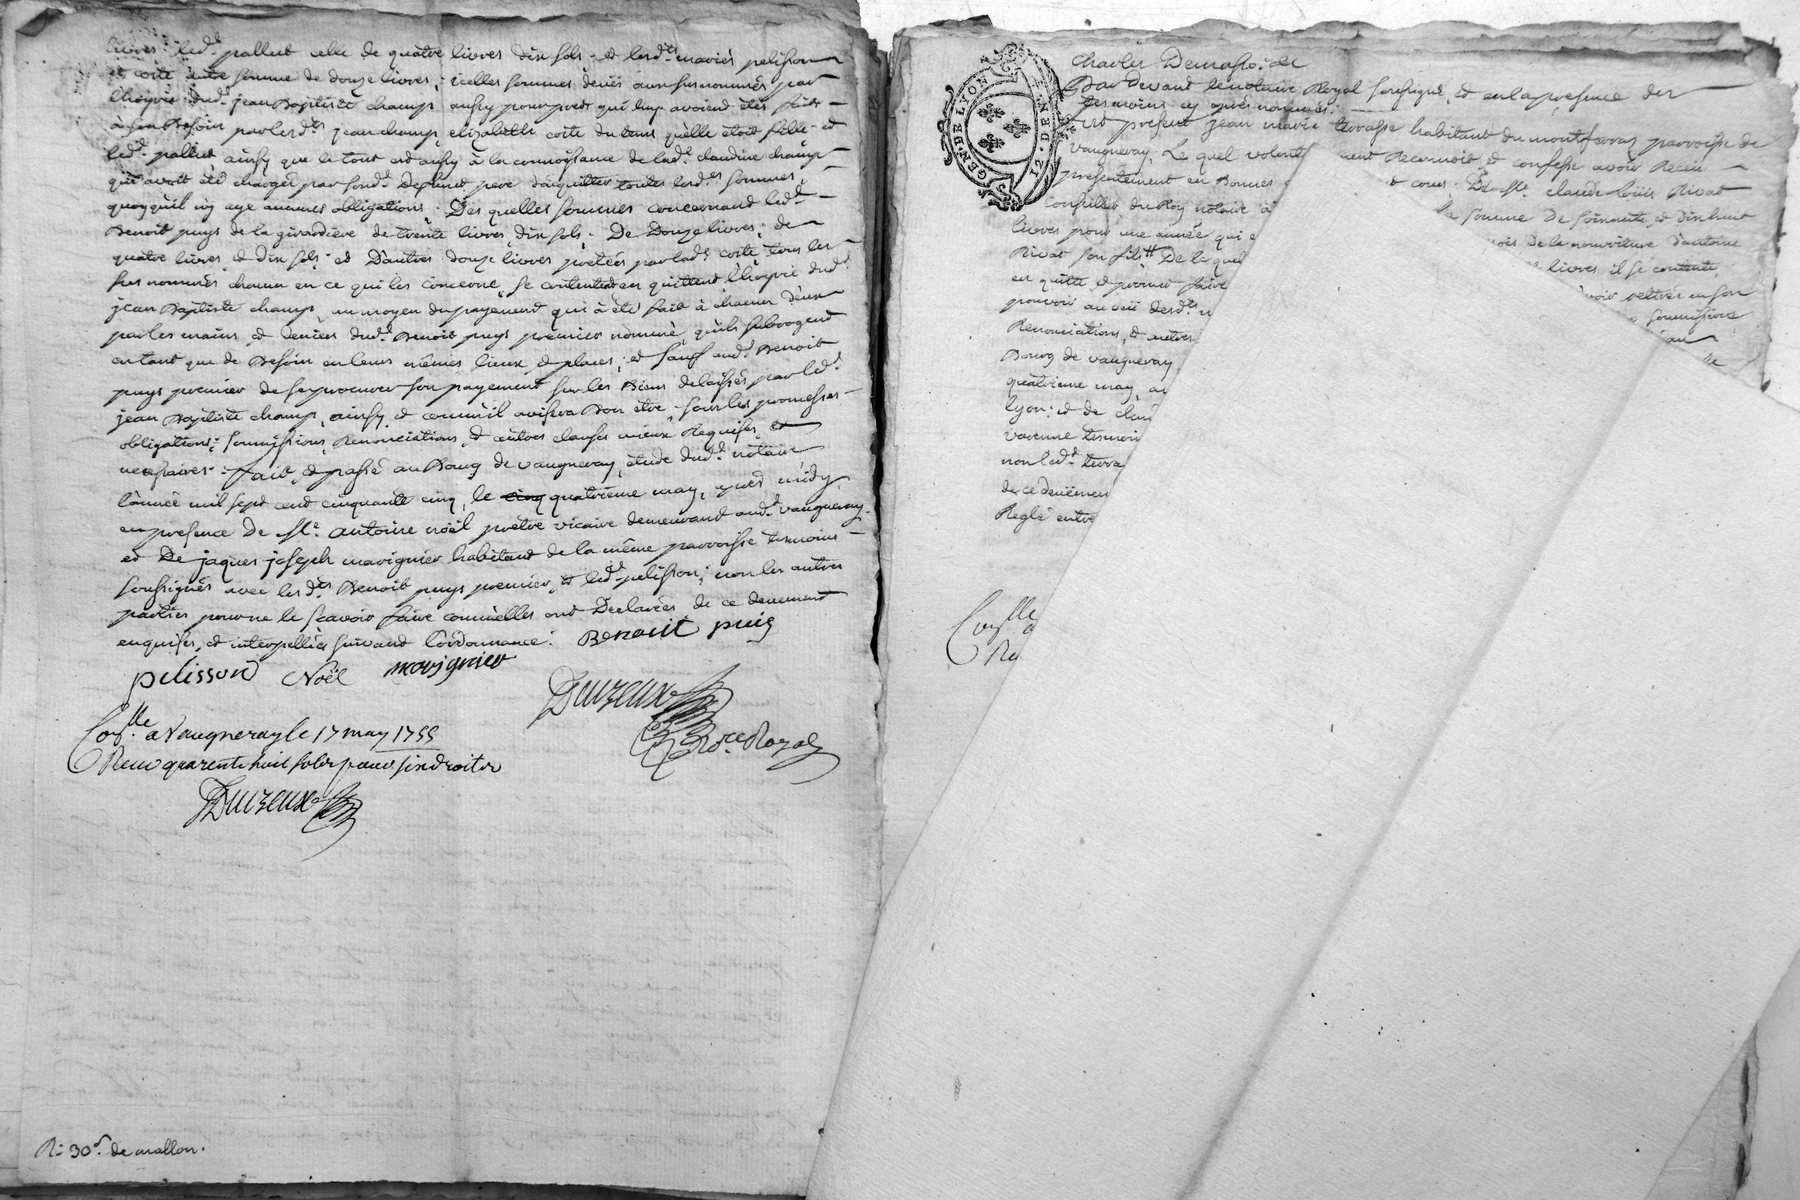 livres; led.t pallut celle de quatre livres dix sols; et lesd.ts mariés pelisson
et coite autre somme de douze livres; icelles sommes deües aux susnommés par
l'hoyrie dud.t jean Baptiste champ, aussy pour prest qui luy avoient étés faits
à son Besoin par lesd.ts jean champ, elizabette coite du tems qu'elle étoit fille et
led.t pallut, ainsy que le tout est aussy à la connoissance de lad.te claudine champ
qui avoit été chargée par sond.t Deffunt pere d'acquitter toutes lesd.tes sommes,
quoyqu'il n'y aye aucunes obligations; Des quelles sommes concernant led.t
Benoît puys de la girardière de trente livres, dix sols; De Douze livres; de
quatre livres, et dix sols; et D'autres douze livres pretées par lad.te coite, tous les
sus nommés chacun en ce qui les concerne, se contentent en quittent l'hoyrie dud.t
jean Baptiste champ, au moyen du payement qui a été fait à chacun d'eux
par les mains, et deniers dud.t Benoit puys premier nommé, qu'ils subrogent
en tant que de Besoin en leurs mêmes lieux, et places; et sauf aud.t Benoit
puys premier de se procurer son payement sur les Biens delaissés par led.t
jean Baptiste champ, ainsy et comme il avisera Bon etre, sous les promesses
obligations; soumissions, Renonciations, et autres clauses mieux Requises, et
necessaires. fait, et passé au Bourg de vaugneray, étude dud.t notaire
l'année mil sept cent cinquante cinq, le cinq quatrieme may, après midy,
en presence de M.e antoine nöel prêtre vicaire demeurant aud.t vaugneray,
et De jaques joseph marignier habitant de la même parroisse temoins
soussignés avec lesd.ts Benoit puys premier, et led.t pelisson; non les autres
parties pour ne le sçavoir faire comme elles ont Declarées de ce deuement
enquises, et interpellées suivant l'ordonnance. Benoit puis
pelisson Nöel marignier
Duizeux
No.re Royal
Con.lle a Vaugneray le 17 may 1755
Receu quarente huit sols pour six droits
Duizeux
R: 30s. de mallon.
GEN. DE LYON
12. DEN.
Charles Demasso: de
Par Devant le notaire Royal soussigné, et en la presence des
temoins cy aprés nommés:
fut present jean marie terrasse habitant du montferrat parroisse de
vaugneray; Le quel volont ment Reconnoit, et confesse avoir Receu
presentement en Bonnes et cours. De M.e claude Louis Rivat
Conseiller du Roy notaire à la somme De soixante, et dix huit
livres pour une année qui e mois De la nourriture d'antoine
Rivat son fils. De la quel livres, il se contente,
en quitte, et promet faire avoir retirer en son
pouvoir au veü desd.ts soumissions
Renonciations, et autres
Bourg de vaugneray,
quatrieme may, a
lyon; et de clau
varenne temoin
non led.t terra
de ce deüemen
Reglé entre
Con.lle a
Re